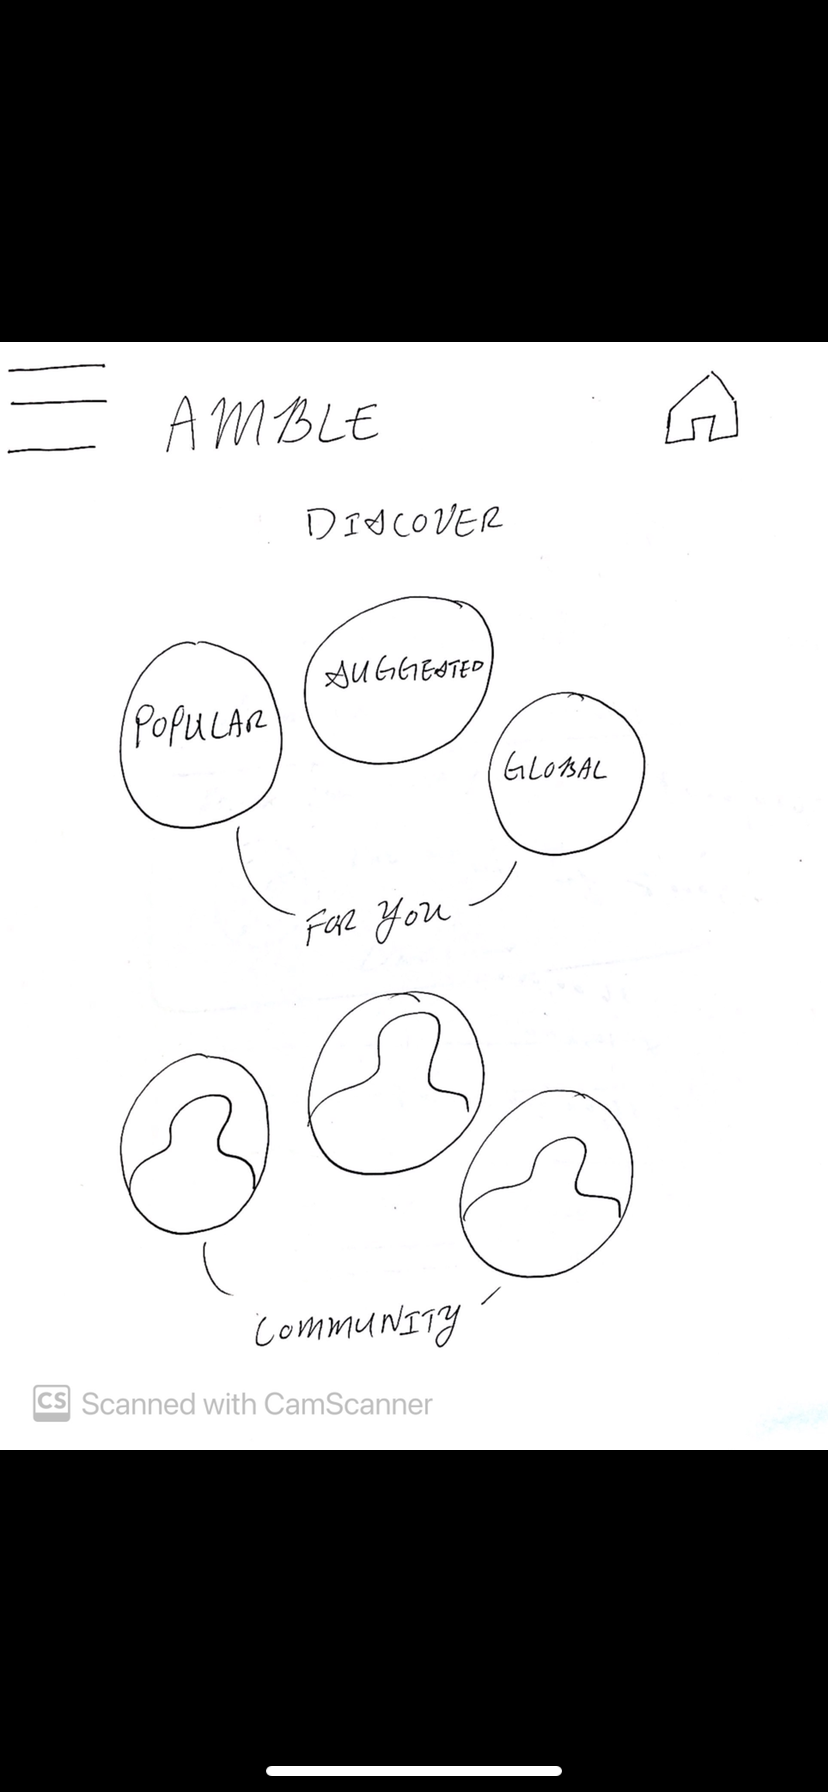 AMBLE
DISCOVER
POPULAR
SUGGESTED
GLOBAL
FOR YOU
COMMUNITY
CS Scanned with CamScanner